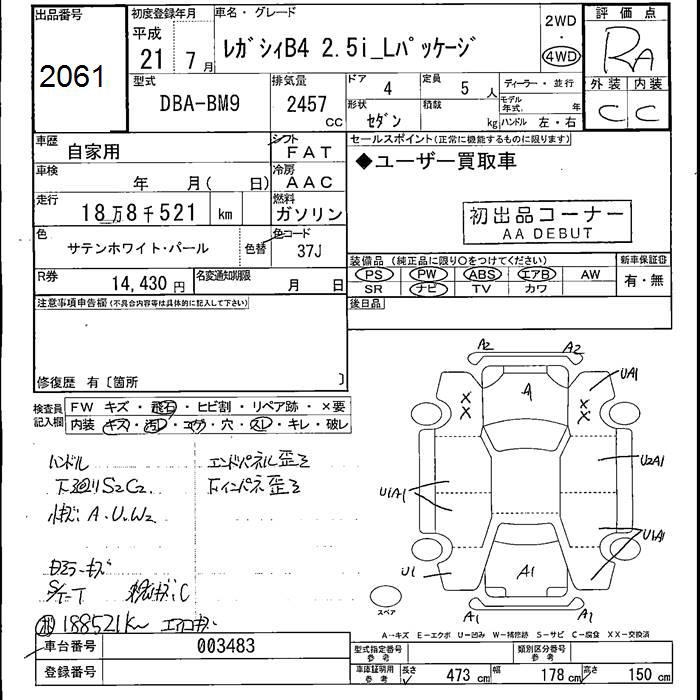 出品番号
2061
初度登録年月
平成
21年 7月
車名・グレード
ﾚｶﾞｼｨB4 2.5i_Lﾊﾟｯｹｰｼﾞ
2WD
・
4WD
評価点
RA
外装 内装
C C
型式
DBA-BM9
排気量
2457
cc
ドア
4
定員
5 人
形状
ｾﾀﾞﾝ
積載
kg
ディーラー・並行
モデル年式
年
ハンドル 左・右
車歴
自家用
シフト
FAT
車検
年 月( 日)
冷房
AAC
走行
18万8千521 km
燃料
ガソリン
色
サテンホワイト・パール
色替
色コード
37J
R券
14,430 円
名変通知期限
月 日
セールスポイント(正常に機能するものに限ります)
◆ユーザー買取車
初出品コーナー
AA DEBUT
装備品(純正品に限り○をつけてください)
新車保証書
PS PW ABS エアB AW
SR ナビ TV カワ
有・無
後日品
注意事項申告欄(不具合内容等は具体的に記入して下さい)
修復歴 有〔箇所 〕
検査員記入欄
FW キズ・飛石・ヒビ割・リペア跡・×要
内装 キズ・汚レ・コゲ・穴・スレ・キレ・破レ
ハンドル
エンドパネル歪ミ
下廻りS2C2
A.U.W2
188521km
A2 A2
A
UA1
U2A1
U1A1
U1A1
U1
A1
A1 A1
スペア
A→キズ E→エクボ U→凹み W→補修跡 S→サビ C→腐食 XX→交換済
車台番号
003483
登録番号
型式指定番号
参考
類別区分番号
参考
車庫証明用
参考
長さ 473 cm
幅 178 cm
高さ 150 cm